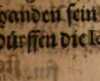 ganden sein
dürffen die k